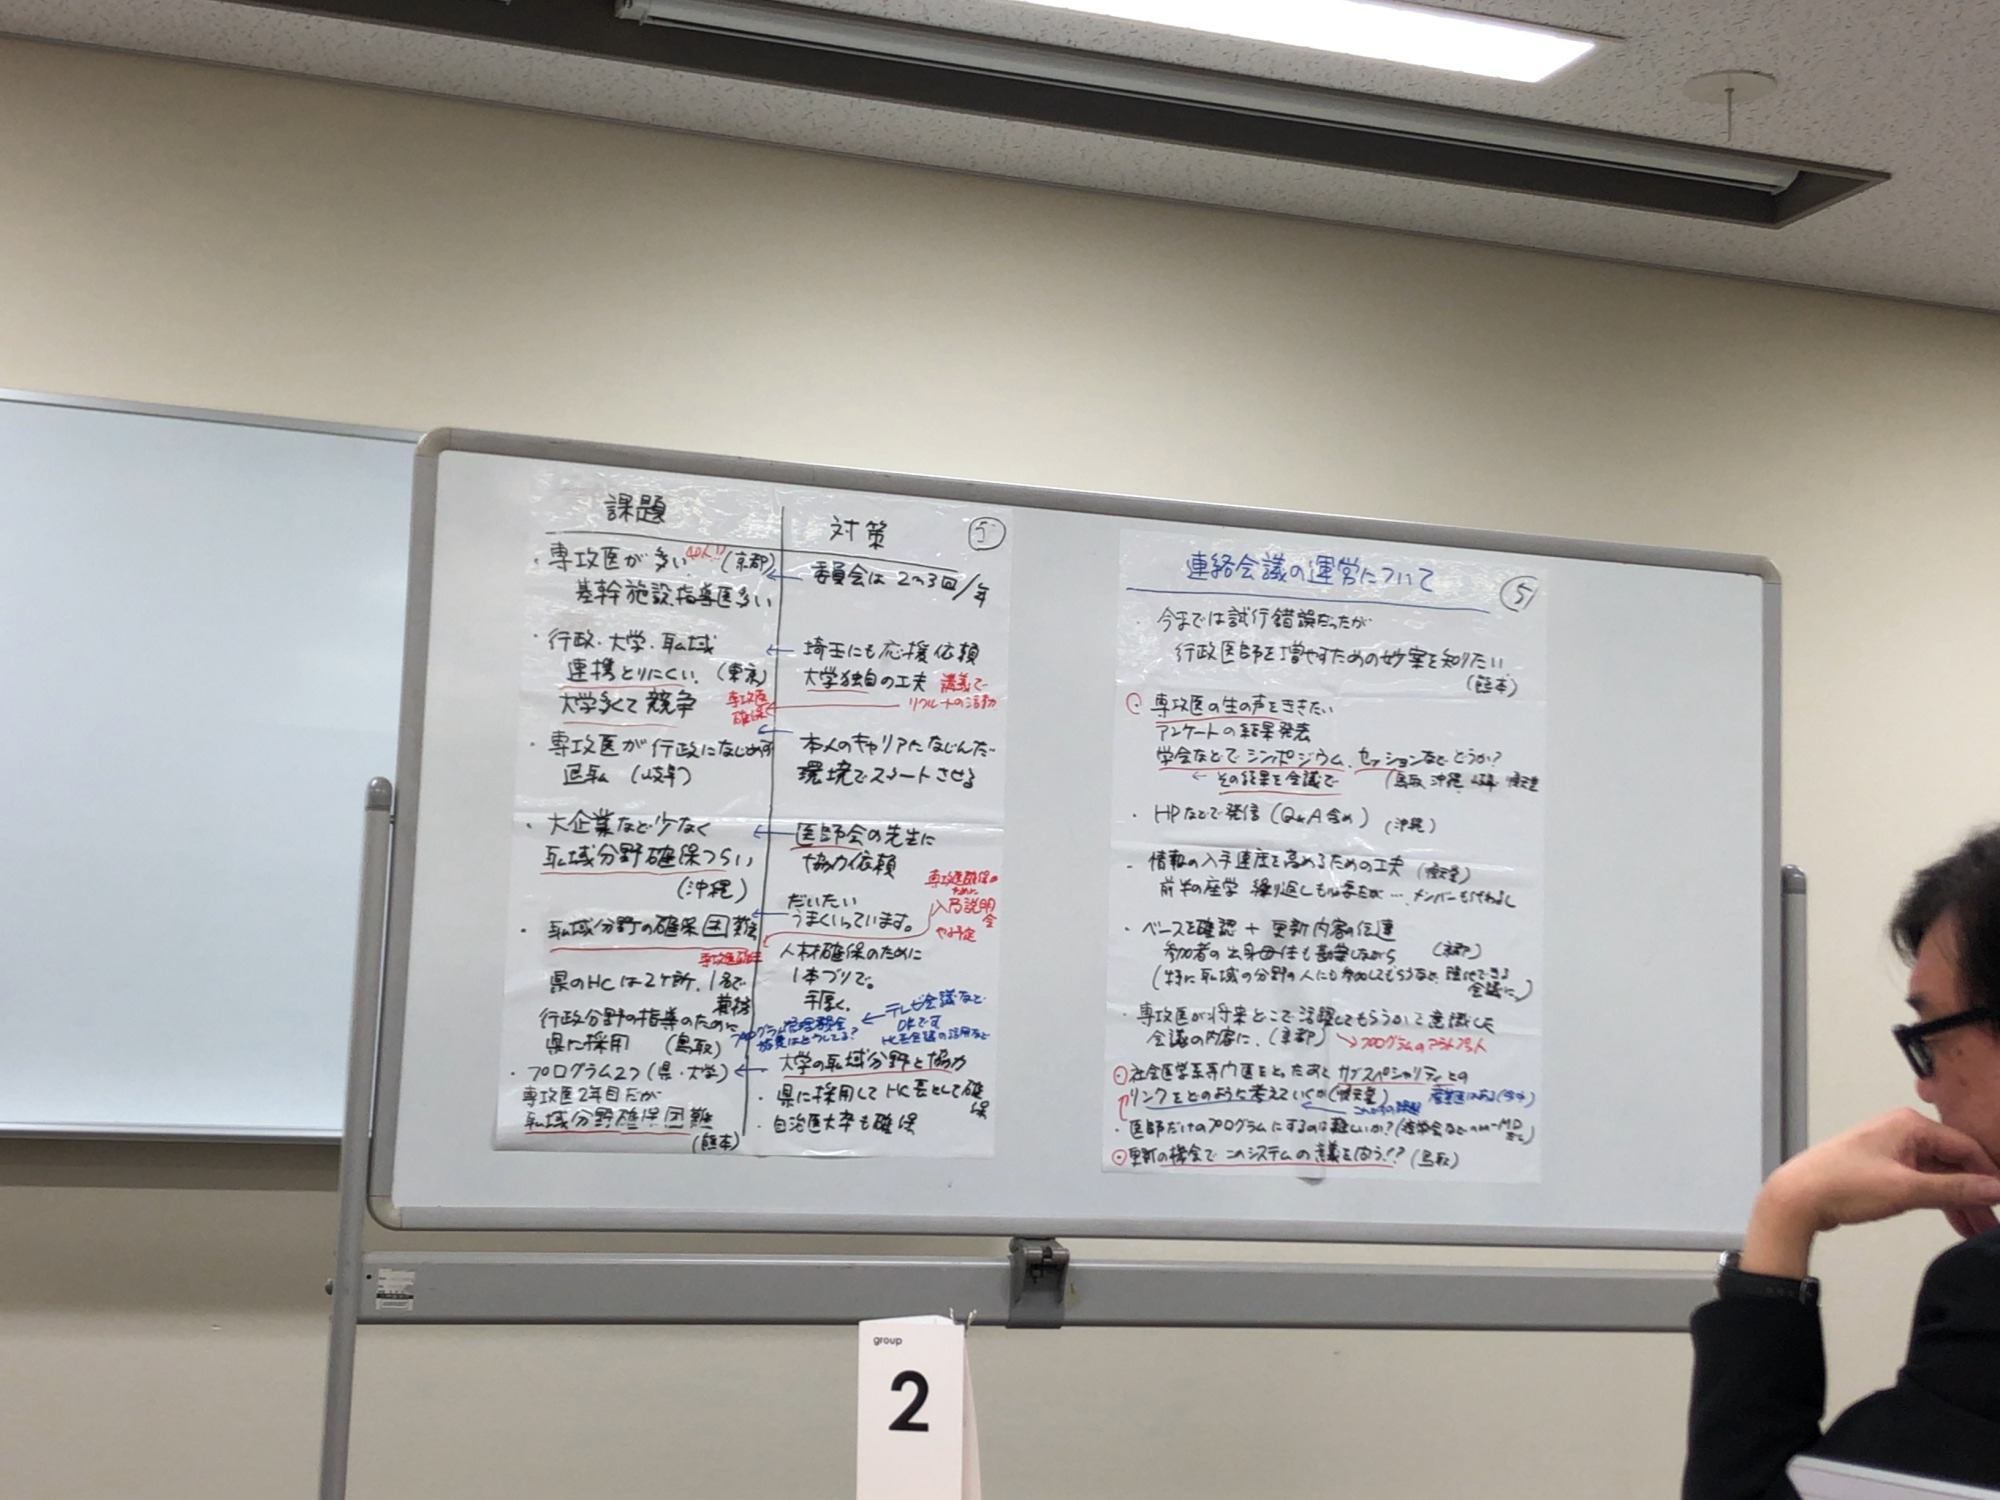 課題
・専攻医が多い 40人!! (京都)
基幹施設、指導医多い
・行政・大学・職域
連携とりにくい。(東京)
大学多くて競争
専攻医
確保
・専攻医が行政になじめず
(岐阜)
・大企業など少なく
職域分野確保つらい
(沖縄)
・職域分野の確保困難
専攻医確保
県のHCは2ヶ所、1名で
兼務
行政分野の指導のために
県に採用 (鳥取)
・プログラム2つ(県・大学)
専攻医2年目だが
職域分野確保困難
(熊本)
対策
5
委員会は2~3回/年
埼玉にも応援依頼
大学独自の工夫 講義で
リクルートの活動
本人のキャリアになじんだ
環境でスタートさせる
医師会の先生に
協力依頼
専攻医確保の
ために
入局説明
会
やる予定
だいたい
うまくいっています。
人材確保のために
1本づりで。
手厚く。
テレビ会議など
OKです
HC長会議の活用など
プログラム管理委員会
はどうしてる?
大学の職域分野と協力
・県に採用してHC長として確
保
・自治医大卒も確保
連絡会議の運営について
5
・今までは試行錯誤だったが
行政医師を増やすための妙案を知りたい
(熊本)
・専攻医の生の声をききたい
アンケートの結果発表
学会などでシンポジウム、セッションなどどうか?
← その結果を会議で (鳥取 沖縄 岐阜 順天堂
・HPなどで発信(Q&A含め) (沖縄)
・情報の入手速度を高めるための工夫 (順天堂)
前半の座学 繰り返しも必要だが… メンバーも代わるし
・ベースを確認 + 更新内容の伝達
参加者の出身母体も勘案しながら (京都)
(特に職域の分野の人にも参加してもらうなど、
会議に。)
・専攻医が将来どこで活躍してもらうかを意識した
会議の内容に。(京都) →プログラムのアウトプット
・社会医学系専門医をとったあとサブスペシャリティとの
リンクをどのように考えていくか(順天堂)
これからの課題
・医師だけのプログラムにするのは難しいか?
・更新の機会でこのシステムの意義を問う!? (鳥取)
group
2